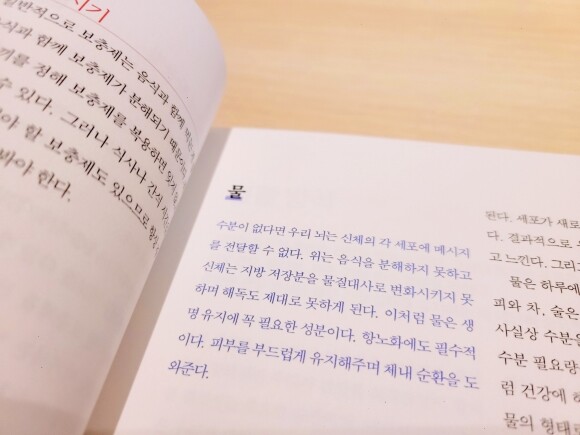 시기
일반적으로 보충제는 음식과 함께
음식과 함께 보충제가 분해되기 때문이다.
끼를 정해 보충제를 복용하면 잊지 않
수 있다. 그러나 식사나 간식 시간
야 할 보충제도 있으므로 항상
봐야 한다.
물
수분이 없다면 우리 뇌는 신체의 각 세포에 메시지
를 전달할 수 없다. 위는 음식을 분해하지 못하고
신체는 지방 저장분을 물질대사로 변화시키지 못
하며 해독도 제대로 못하게 된다. 이처럼 물은 생
명 유지에 꼭 필요한 성분이다. 항노화에도 필수적
이다. 피부를 부드럽게 유지해주며 체내 순환을 도
와준다.
된다. 세포가 새로
다. 결과적으로
고 느낀다. 그리고
물은 하루에
피와 차, 술은
사실상 수분을
수분 필요량
럼 건강에 해
물의 형태로